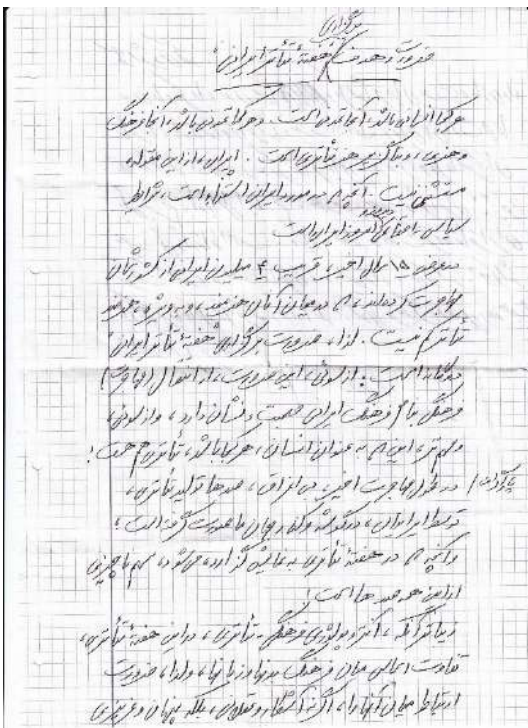 برگزاری
ضرورت و هدف "هفتهٔ تآتر ایرانی"
هر کجا انسان باشد، آنجا تمدن است. و هر کجا تمدن باشد، آنجا فرهنگ
و هنری، و ناگزیر هنر تآتری است. ایران، از این مقوله،
مستثنی نیست. آنچه که در مورد ایران استثناء است، شرایط
سیاسی - اجتماعی امروز ایران است
در عرض ۱۵ سال اخیر، قریب ۴ میلیون ایرانی از کشورشان
مهاجرت کرده‌اند، که در میان آنان هنرمند، و به ویژه، هنرمند
تآتر کم نیست. لذا، ضرورت برگزاری "هفتهٔ تآتر ایرانی"
دوگانه است: از سوئی، این ضرورت، از انتقال (مهاجرت)
فرهنگ بنام فرهنگ ایرانی نشان دارد، و از سوئی،
و مهم‌تر، این که به عنوان انسان، هر کجا باشد، تآتری هم هست!
در طول مهاجرت اخیر، صدها تولید تآتری،
توسط ایرانیان، در گوشه و کنار جهان صورت گرفته است؛
و آنچه که در هفتهٔ تآتری به نمایش گزارده می‌شود، سهم ناچیزی
از این همه صدها است!
زیباتر آنکه، فرهنگی - تآتری، در این هفتهٔ تآتری،
تفاوت اساسی میان فرهنگ و زبانها، و لذا، ضرورت
ارتباط میان آنها را، اگر نه آشکار و بلکه پنهان و غریزی